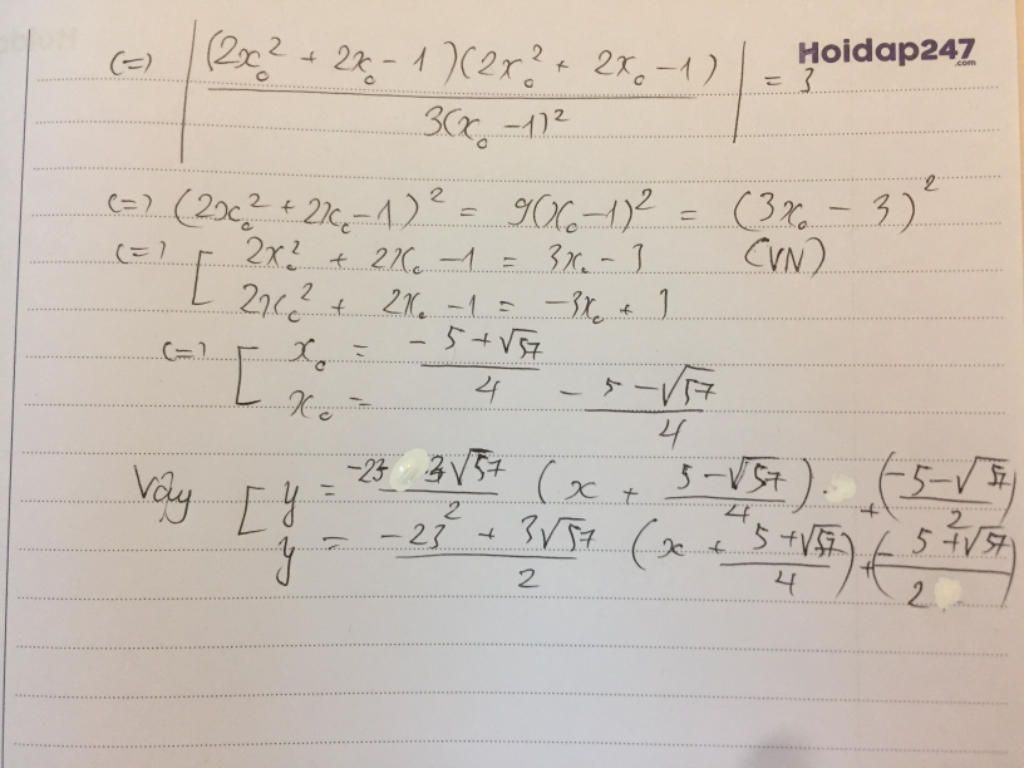 Hoidap247.com
(=) |(2x₀² + 2x₀ - 1)(2x₀² + 2x₀ - 1) / 3(x₀ - 1)²| = 3
(=) (2x₀² + 2x₀ - 1)² = 9(x₀ - 1)² = (3x₀ - 3)²
(=) [ 2x₀² + 2x₀ - 1 = 3x₀ - 3 (VN)
2x₀² + 2x₀ - 1 = -3x₀ + 3
(=) [ x₀ = (-5 + √57) / 4
x₀ = (-5 - √57) / 4
Vậy [ y = (-23 3√57) / 2 (x + (5 - √57) / 4) + ((-5 - √57) / 2)
y = (-23 + 3√57) / 2 (x + (5 + √57) / 4) + ((-5 + √57) / 2)